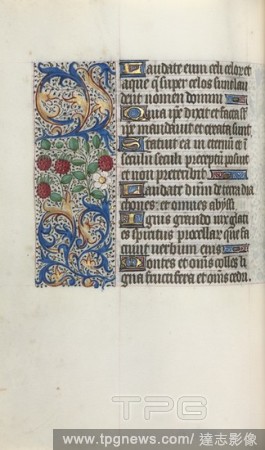 Laudate eum celi celor et
aque q super celos sunt lau
dent nomen domini
Quia ipe dixit et facta st
ipe mandauit et creata sunt.
Statuit ea in eternu et i
seculu seculi preceptu posuit
et non preteribit
Laudate dnm de terra dra
chones et omnes abyssi
Ignis grando nix glaci
es spiritus procellar que fa
ciunt uerbum eius
Montes et oms colles li
gna fructifera et oms cedri.
TPG
www.tpgnews.com / 達志影像